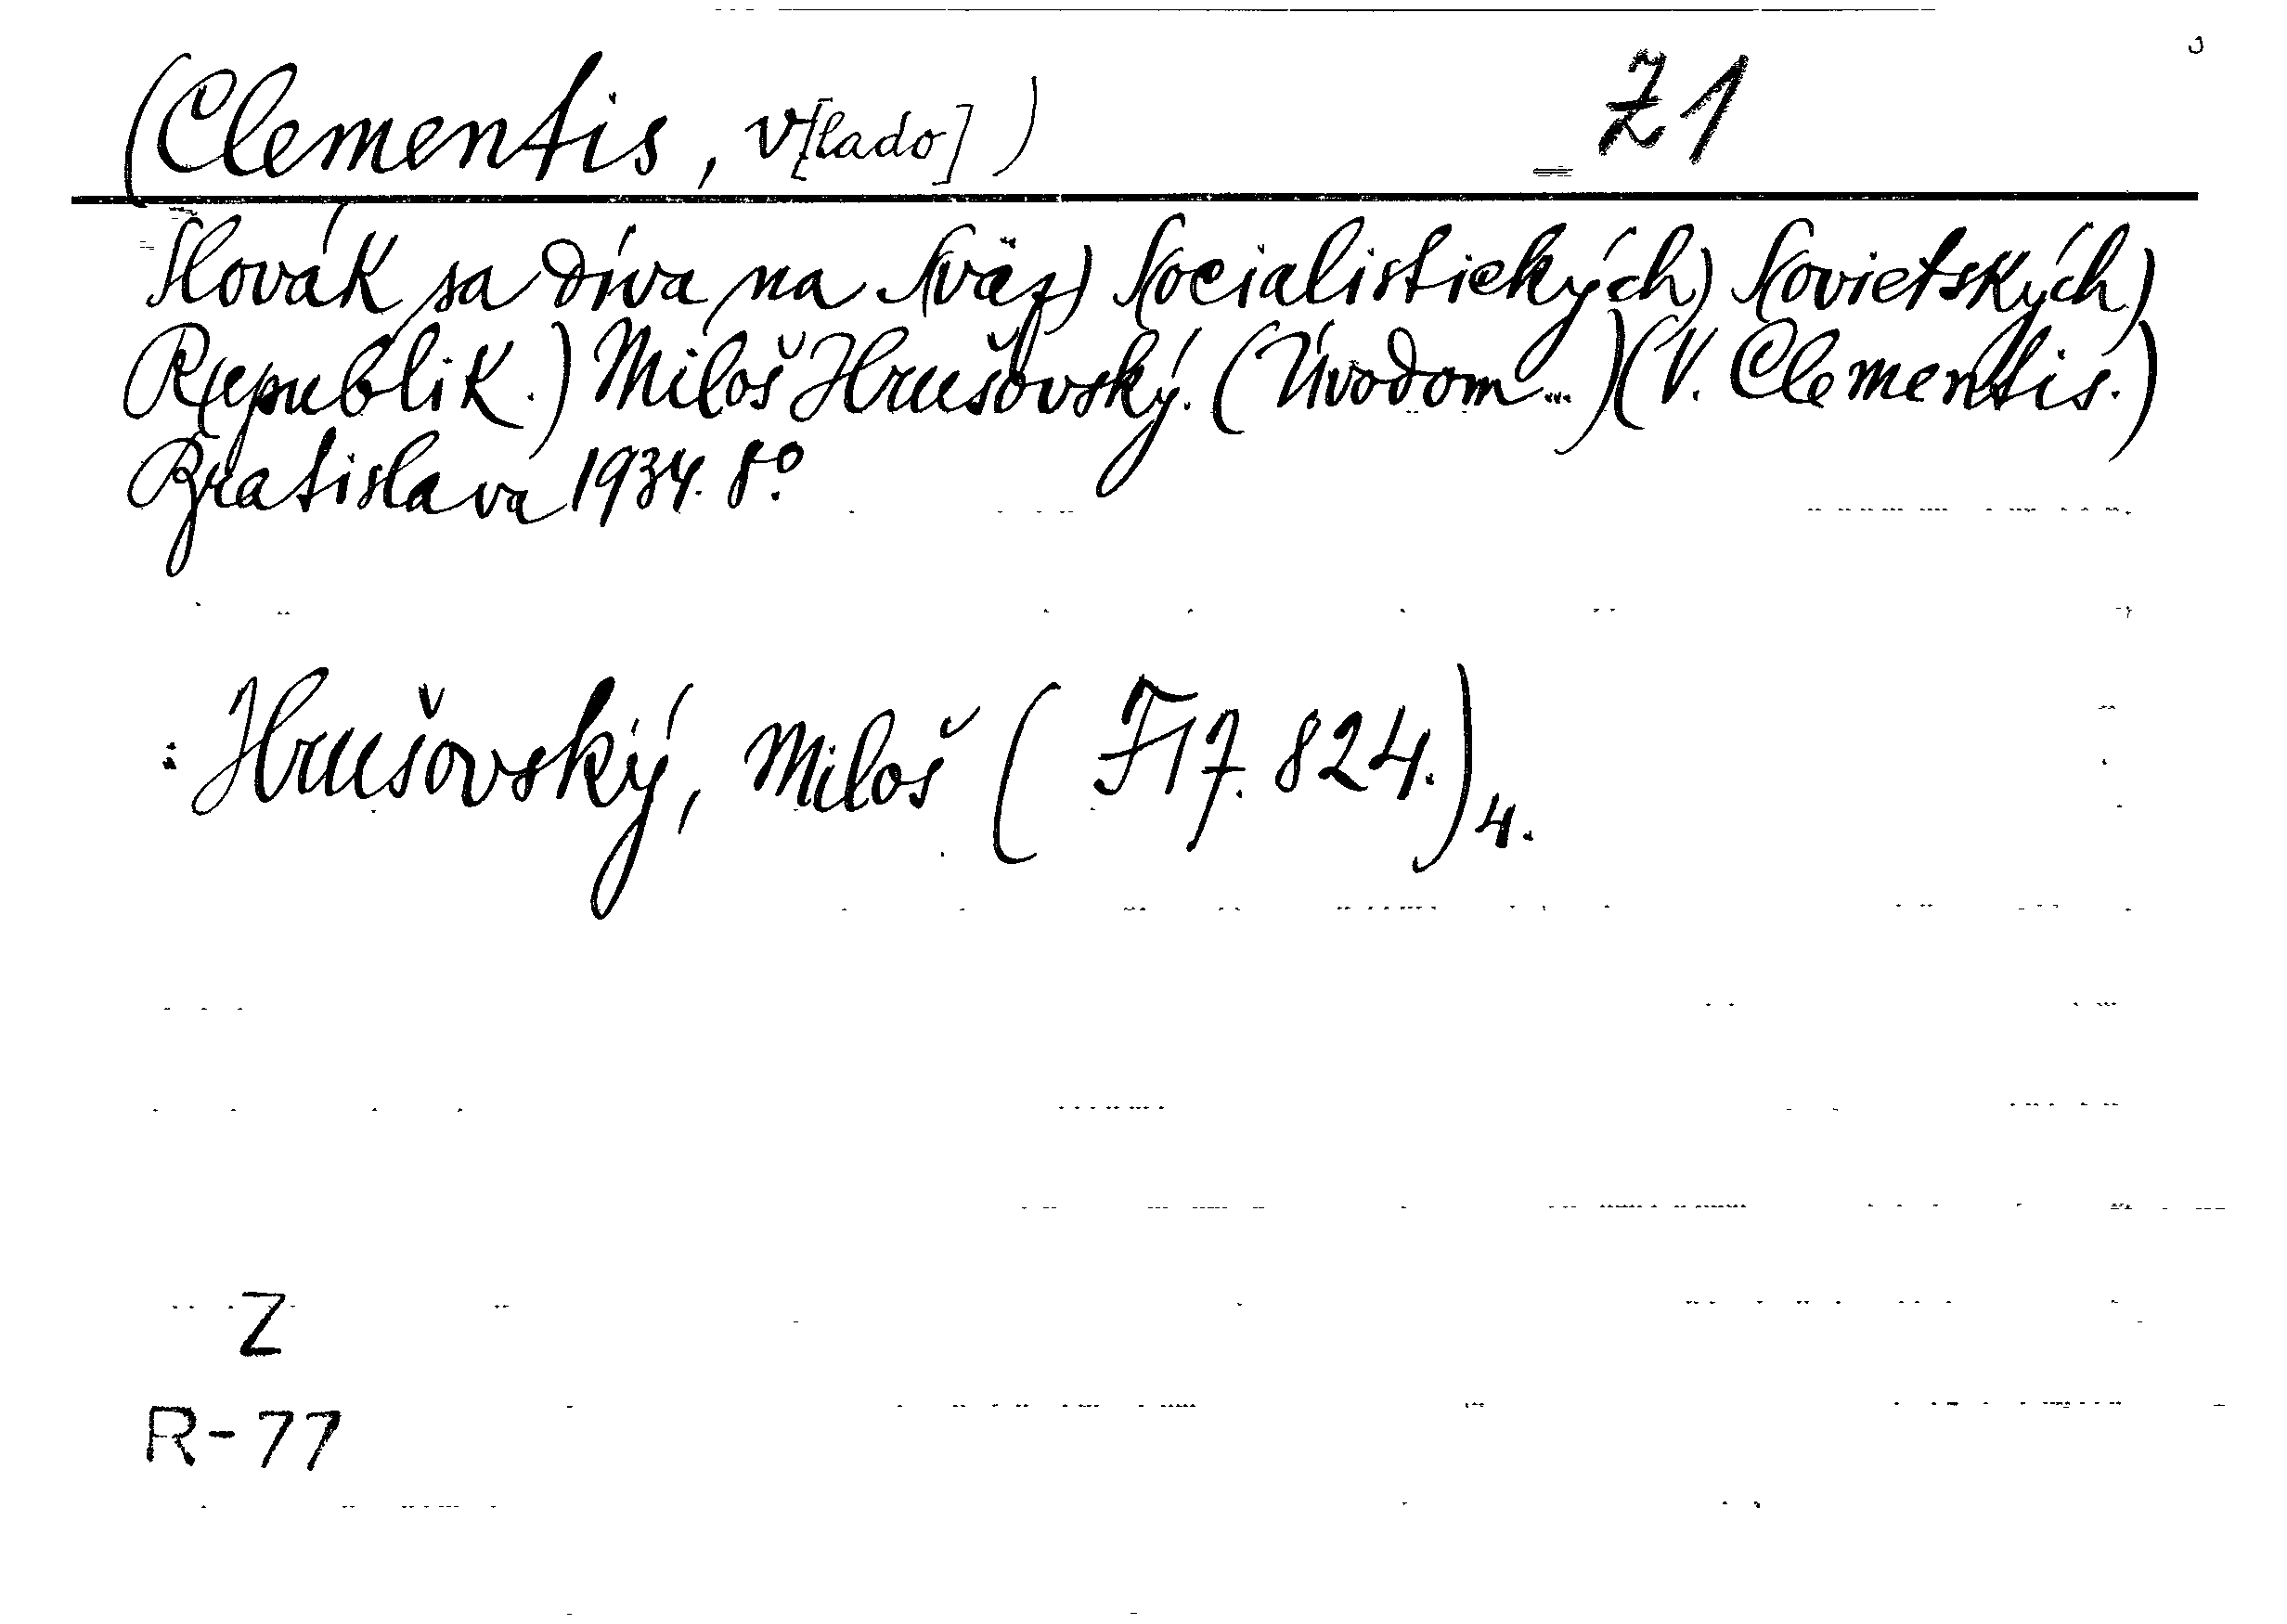 (Clementis, V[lado]) Z1
Slovák sa díva na S(väz) S(ocialistických) S(ovietskych)
R(epublik.) Miloš Hrušovský. (Úvodom...) (V. Clementis.)
Bratislava 1934. 8°.
: Hrušovský, Miloš (F17.824.) 4.
Z
R-77